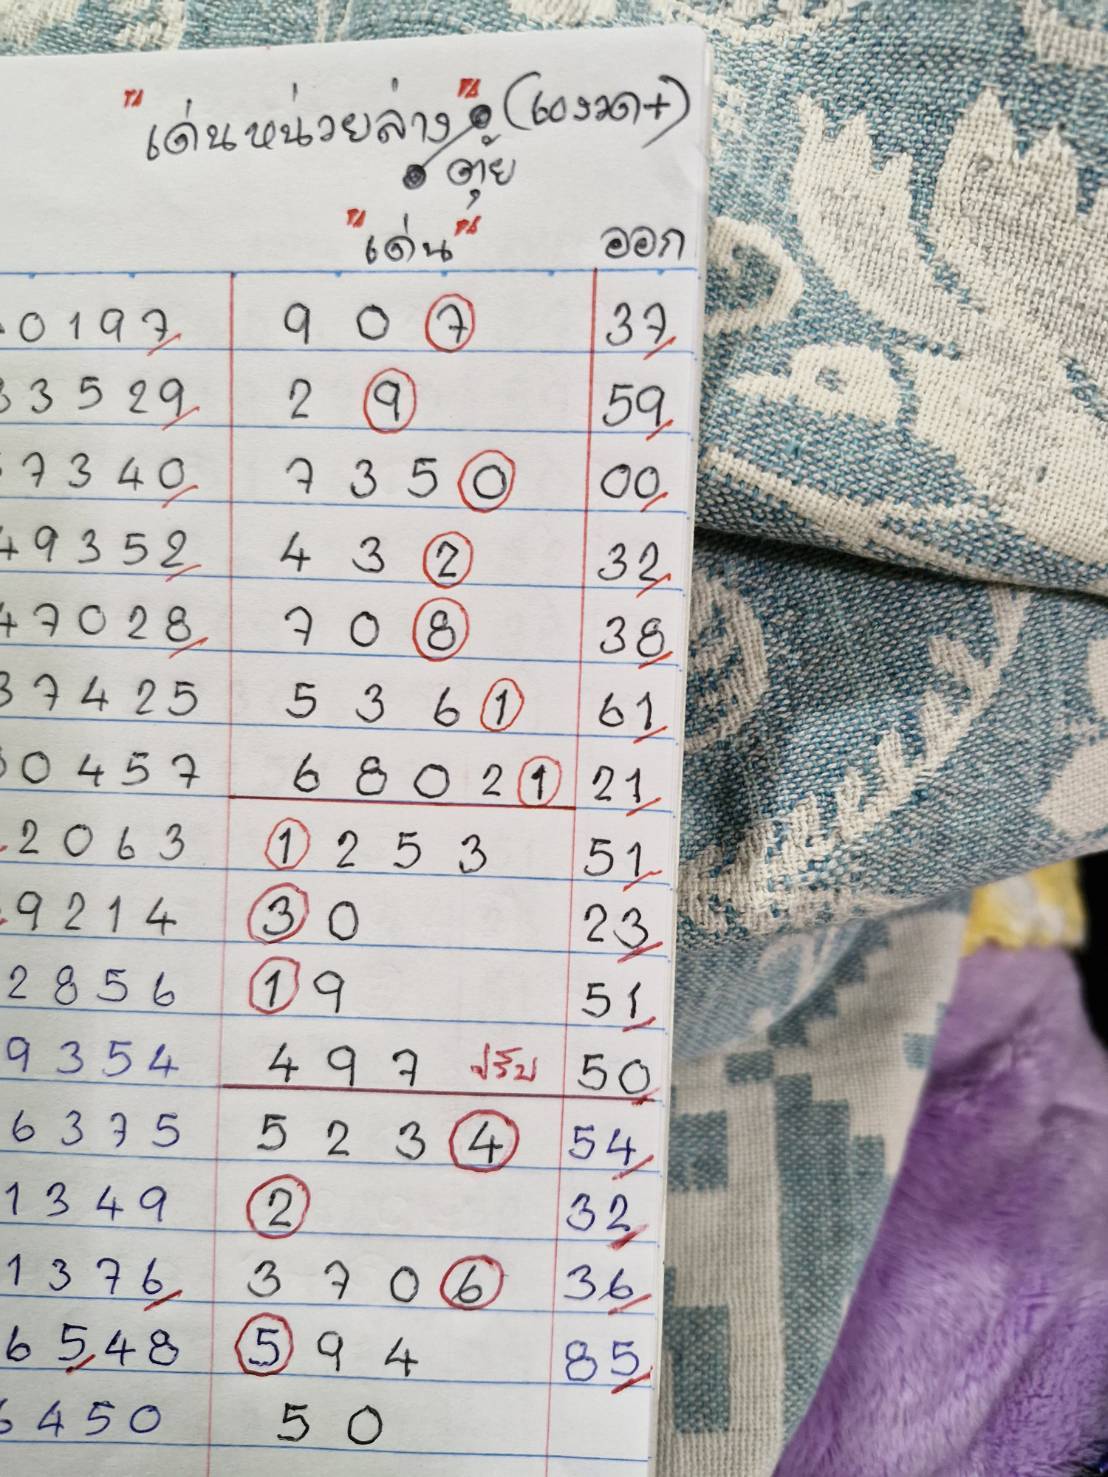 "เด่นหน่วยล่าง" (60งวด+)
ตุ้ย
"เด่น" ออก
0197 907 37
33529 29 59
7340 7350 00
49352 432 32
47028 708 38
37425 5361 61
0457 68021 21
2063 1253 51
9214 30 23
2856 19 51
9354 497 ปรับ 50
6375 5234 54
1349 2 32
1376 3706 36
6548 594 85
6450 50